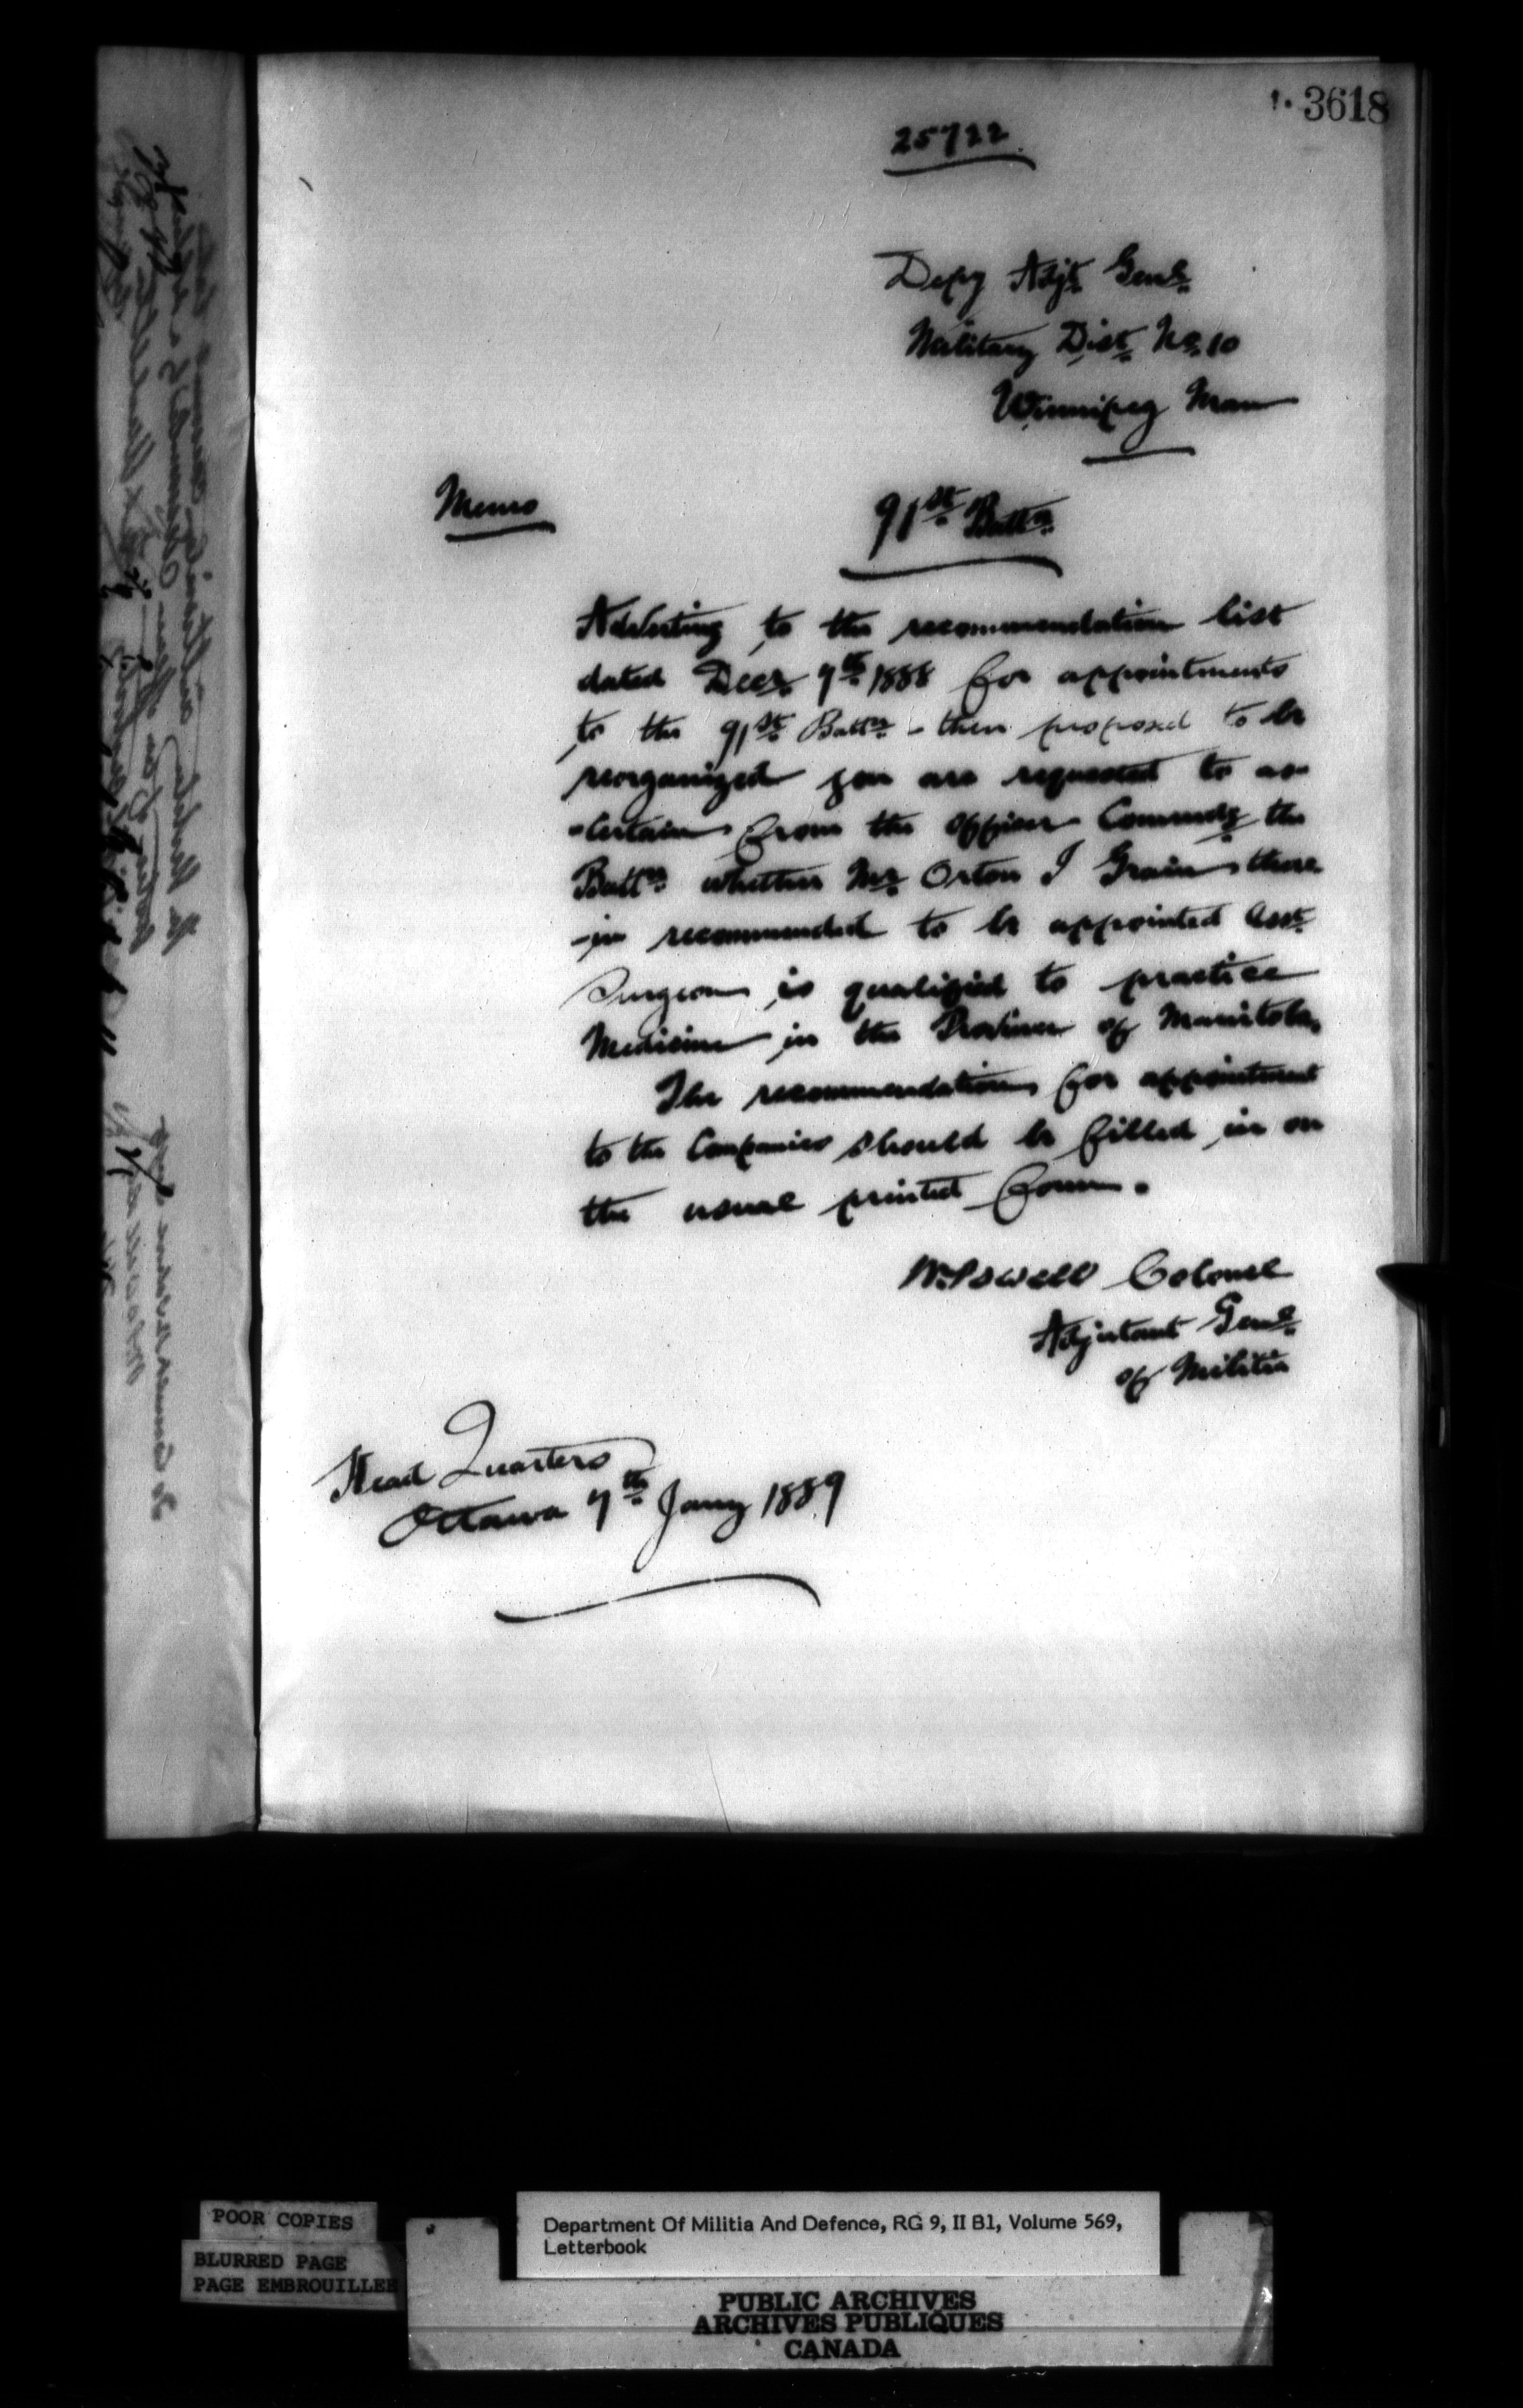 3618
25722
Depy Adjt Genl
Military Dist No 10
Winnipeg Man
Memo
91st Battn
Adverting to the recommendation list
dated Decr 7th 1888 for appointments
to the 91st Battn - then proposed to be
reorganized you are requested to as-
-certain from the Officer Commdg the
Battn whether Mr Orton I Grain there
-in recommended to be appointed Asst
Surgeon is qualified to practice
Medicine in the Province of Manitoba.
The recommendations for appointment
to the Companies should be filled in on
the usual printed form.
W. Powell Colonel
Adjutant Genl
of Militia
Head Quarters
Ottawa 7th Jany 1889
POOR COPIES
BLURRED PAGE
PAGE EMBROUILLEE
Department Of Militia And Defence, RG 9, II B1, Volume 569,
Letterbook
PUBLIC ARCHIVES
ARCHIVES PUBLIQUES
CANADA